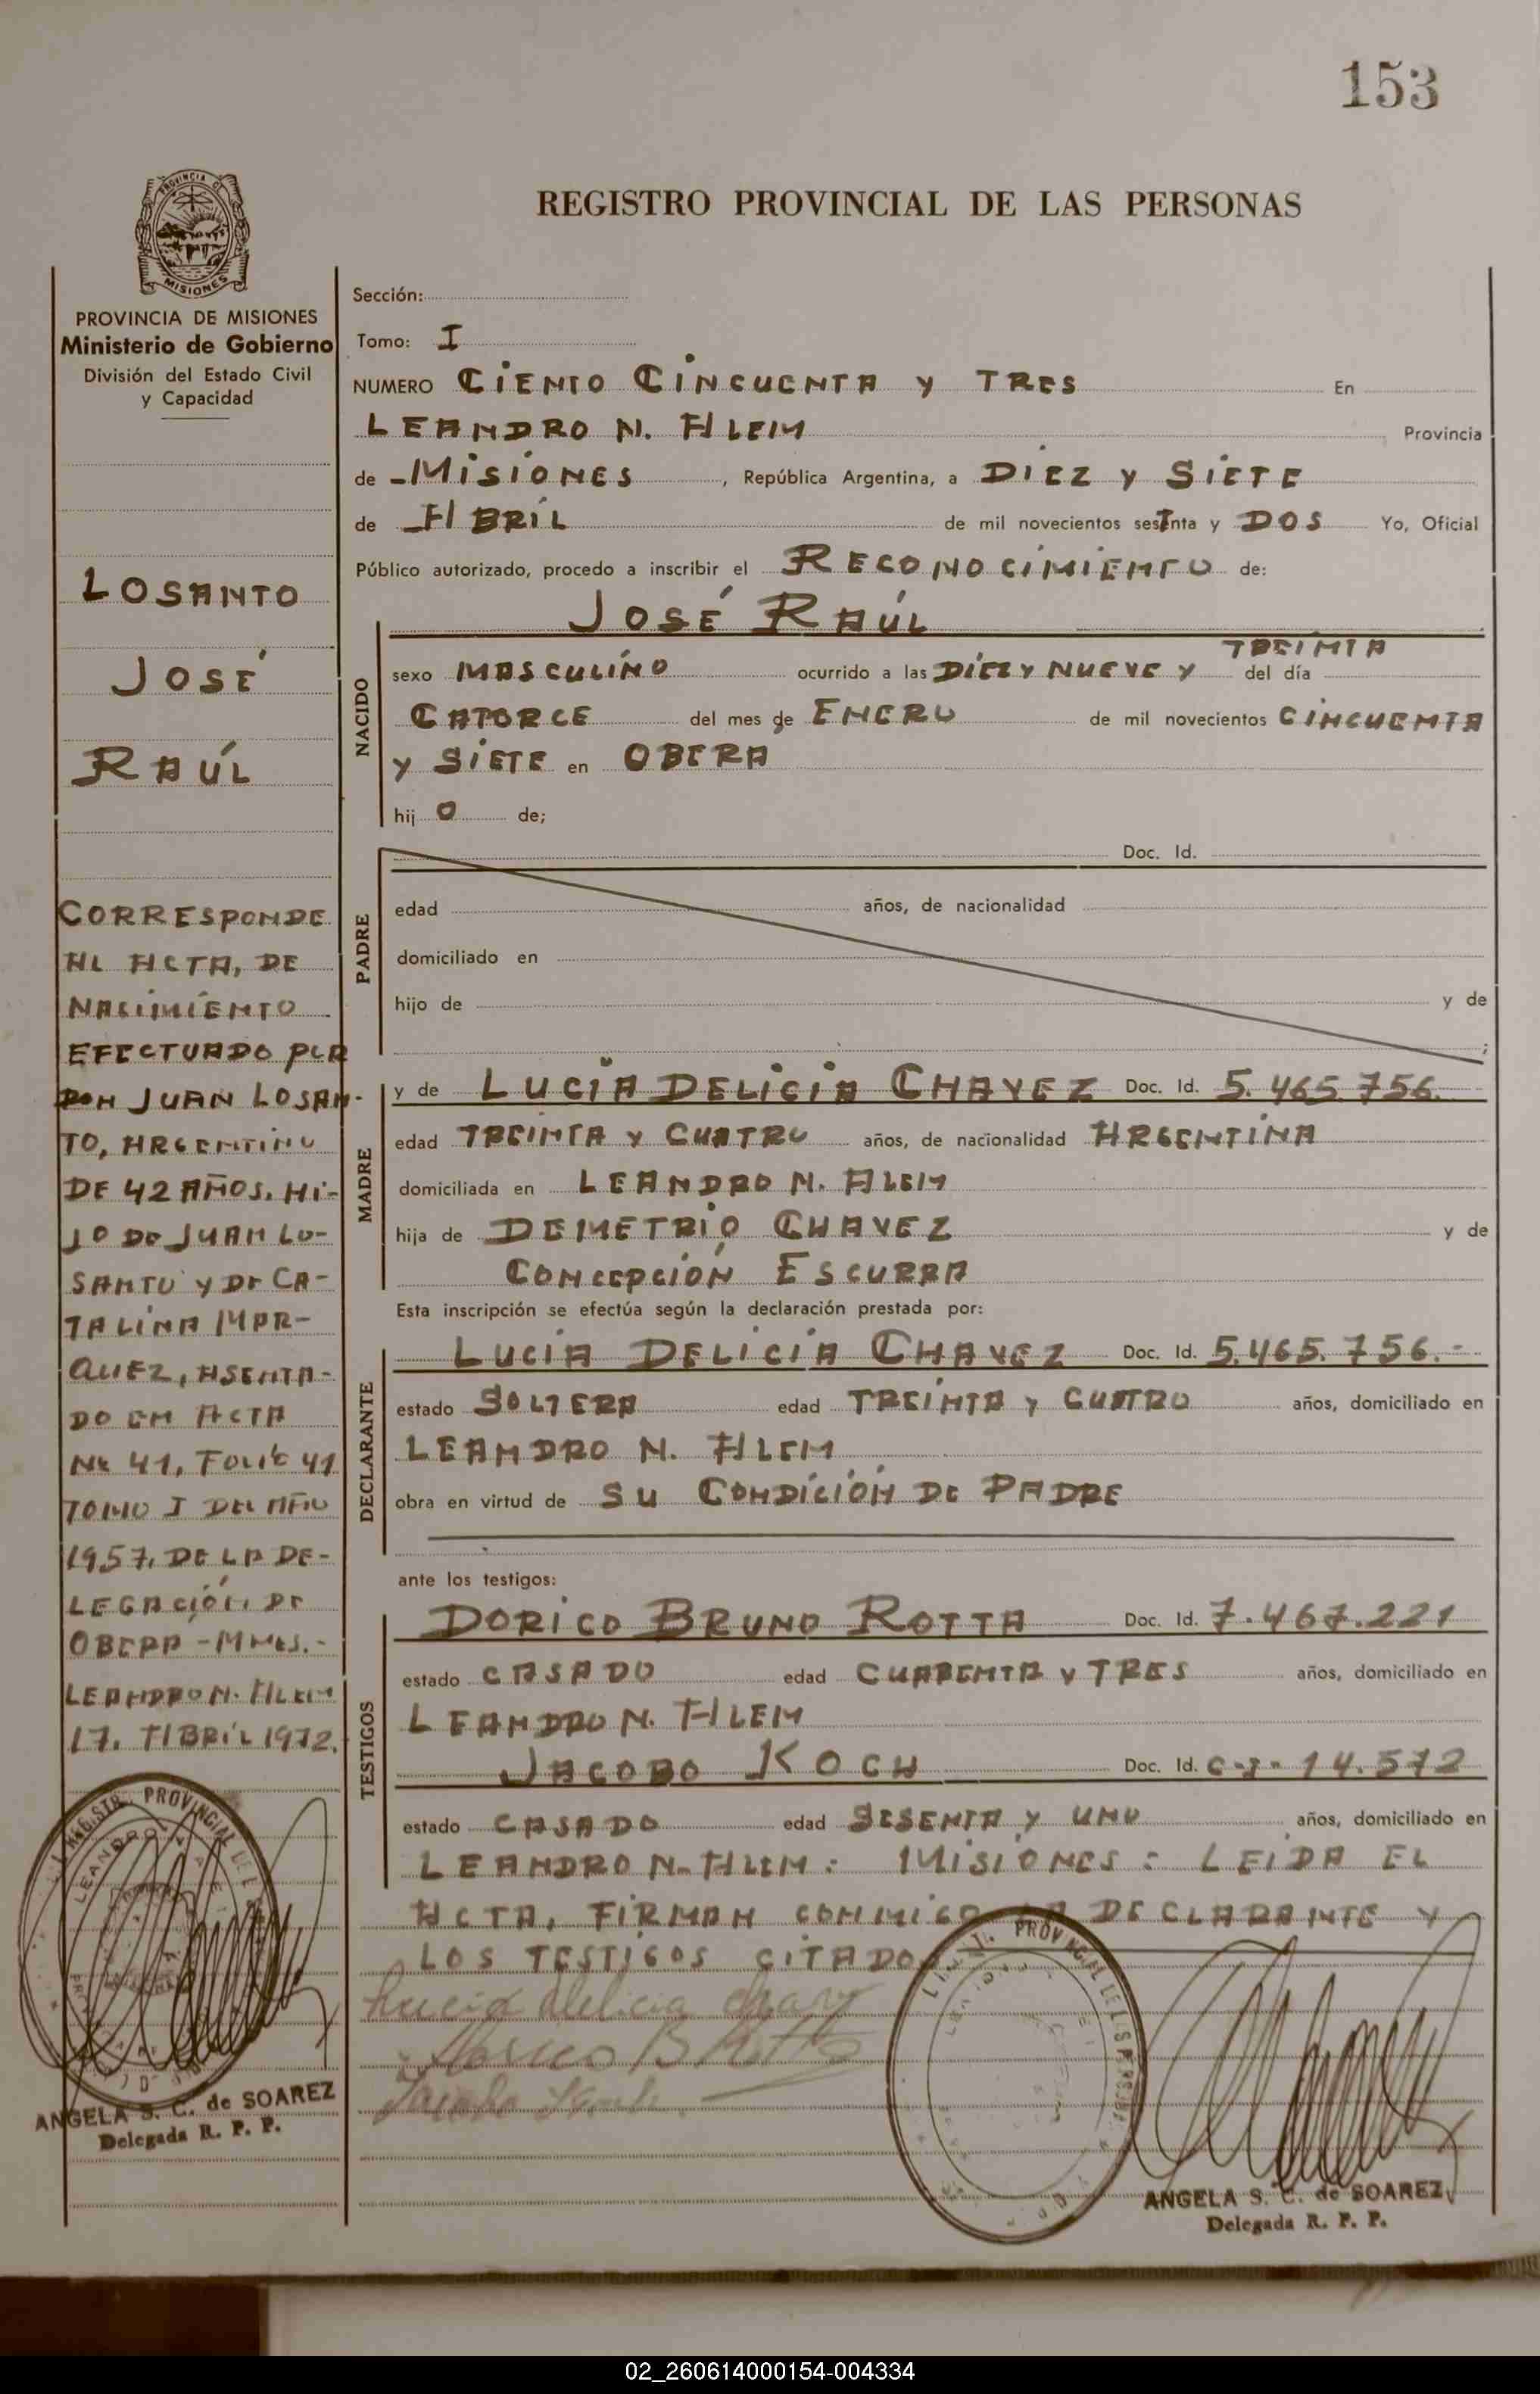 153
REGISTRO PROVINCIAL DE LAS PERSONAS
PROVINCIA DE MISIONES
Ministerio de Gobierno
División del Estado Civil
y Capacidad
LOSANTO
JOSÉ
RAÚL
CORRESPONDE
AL ACTA, DE
NACIMIENTO
EFECTUADO POR
DON JUAN LOSAN-
TO, ARGENTINO
DE 42 AÑOS, HI-
JO DE JUAN LO-
SANTO Y DE CA-
TALINA MAR-
QUEZ, ASENTA-
DO EN ACTA
Nº 41, FOLIO 41
TOMO I DEL AÑO
1957, DE LA DE-
LEGACIÓN, DE
OBERA - MNES.-
LEANDRO N. ALEM
17, ABRIL 1972.
ANGELA S. C. de SOAREZ
Delegada R. P. P.
Sección:
Tomo: I
NUMERO CIENTO CINCUENTA Y TRES En
LEANDRO N. ALEM Provincia
de - MISIONES, República Argentina, a DIEZ Y SIETE
de ABRIL de mil novecientos setenta y DOS Yo, Oficial
Público autorizado, procedo a inscribir el RECONOCIMIENTO de:
JOSÉ RAÚL
NACIDO
TREINTA
sexo MASCULINO ocurrido a las DIEZ Y NUEVE Y del día
CATORCE del mes de ENERO de mil novecientos CINCUENTA
Y SIETE en OBERA
hij o de;
PADRE
Doc. Id.
edad años, de nacionalidad
domiciliado en
hijo de y de
;
MADRE
y de LUCIA DELICIA CHAVEZ Doc. Id. 5.465.756.
edad TREINTA Y CUATRO años, de nacionalidad ARGENTINA
domiciliada en LEANDRO N. ALEM
hija de DEMETRIO CHAVEZ y de
CONCEPCIÓN ESCURRA
Esta inscripción se efectúa según la declaración prestada por:
DECLARANTE
LUCIA DELICIA CHAVEZ Doc. Id. 5.465.756.-
estado SOLTERA edad TREINTA Y CUATRO años, domiciliado en
LEANDRO N. ALEM
obra en virtud de SU CONDICIÓN DE PADRE
ante los testigos:
TESTIGOS
DORICO BRUNO ROTTA Doc. Id. 7.467.221
estado CASADO edad CUARENTA Y TRES años, domiciliado en
LEANDRO N. ALEM
JACOBO KOCH Doc. Id. C-I- 14.572
estado CASADO edad SESENTA Y UNO años, domiciliado en
LEANDRO N. ALEM: MISIONES: LEIDA EL
ACTA, FIRMAN CONMIGO LA DECLARANTE Y
LOS TESTIGOS CITADOS
Lucia Delicia Chavez
ANGELA S. C. de SOAREZ
Delegada R. P. P.
02_260614000154-004334